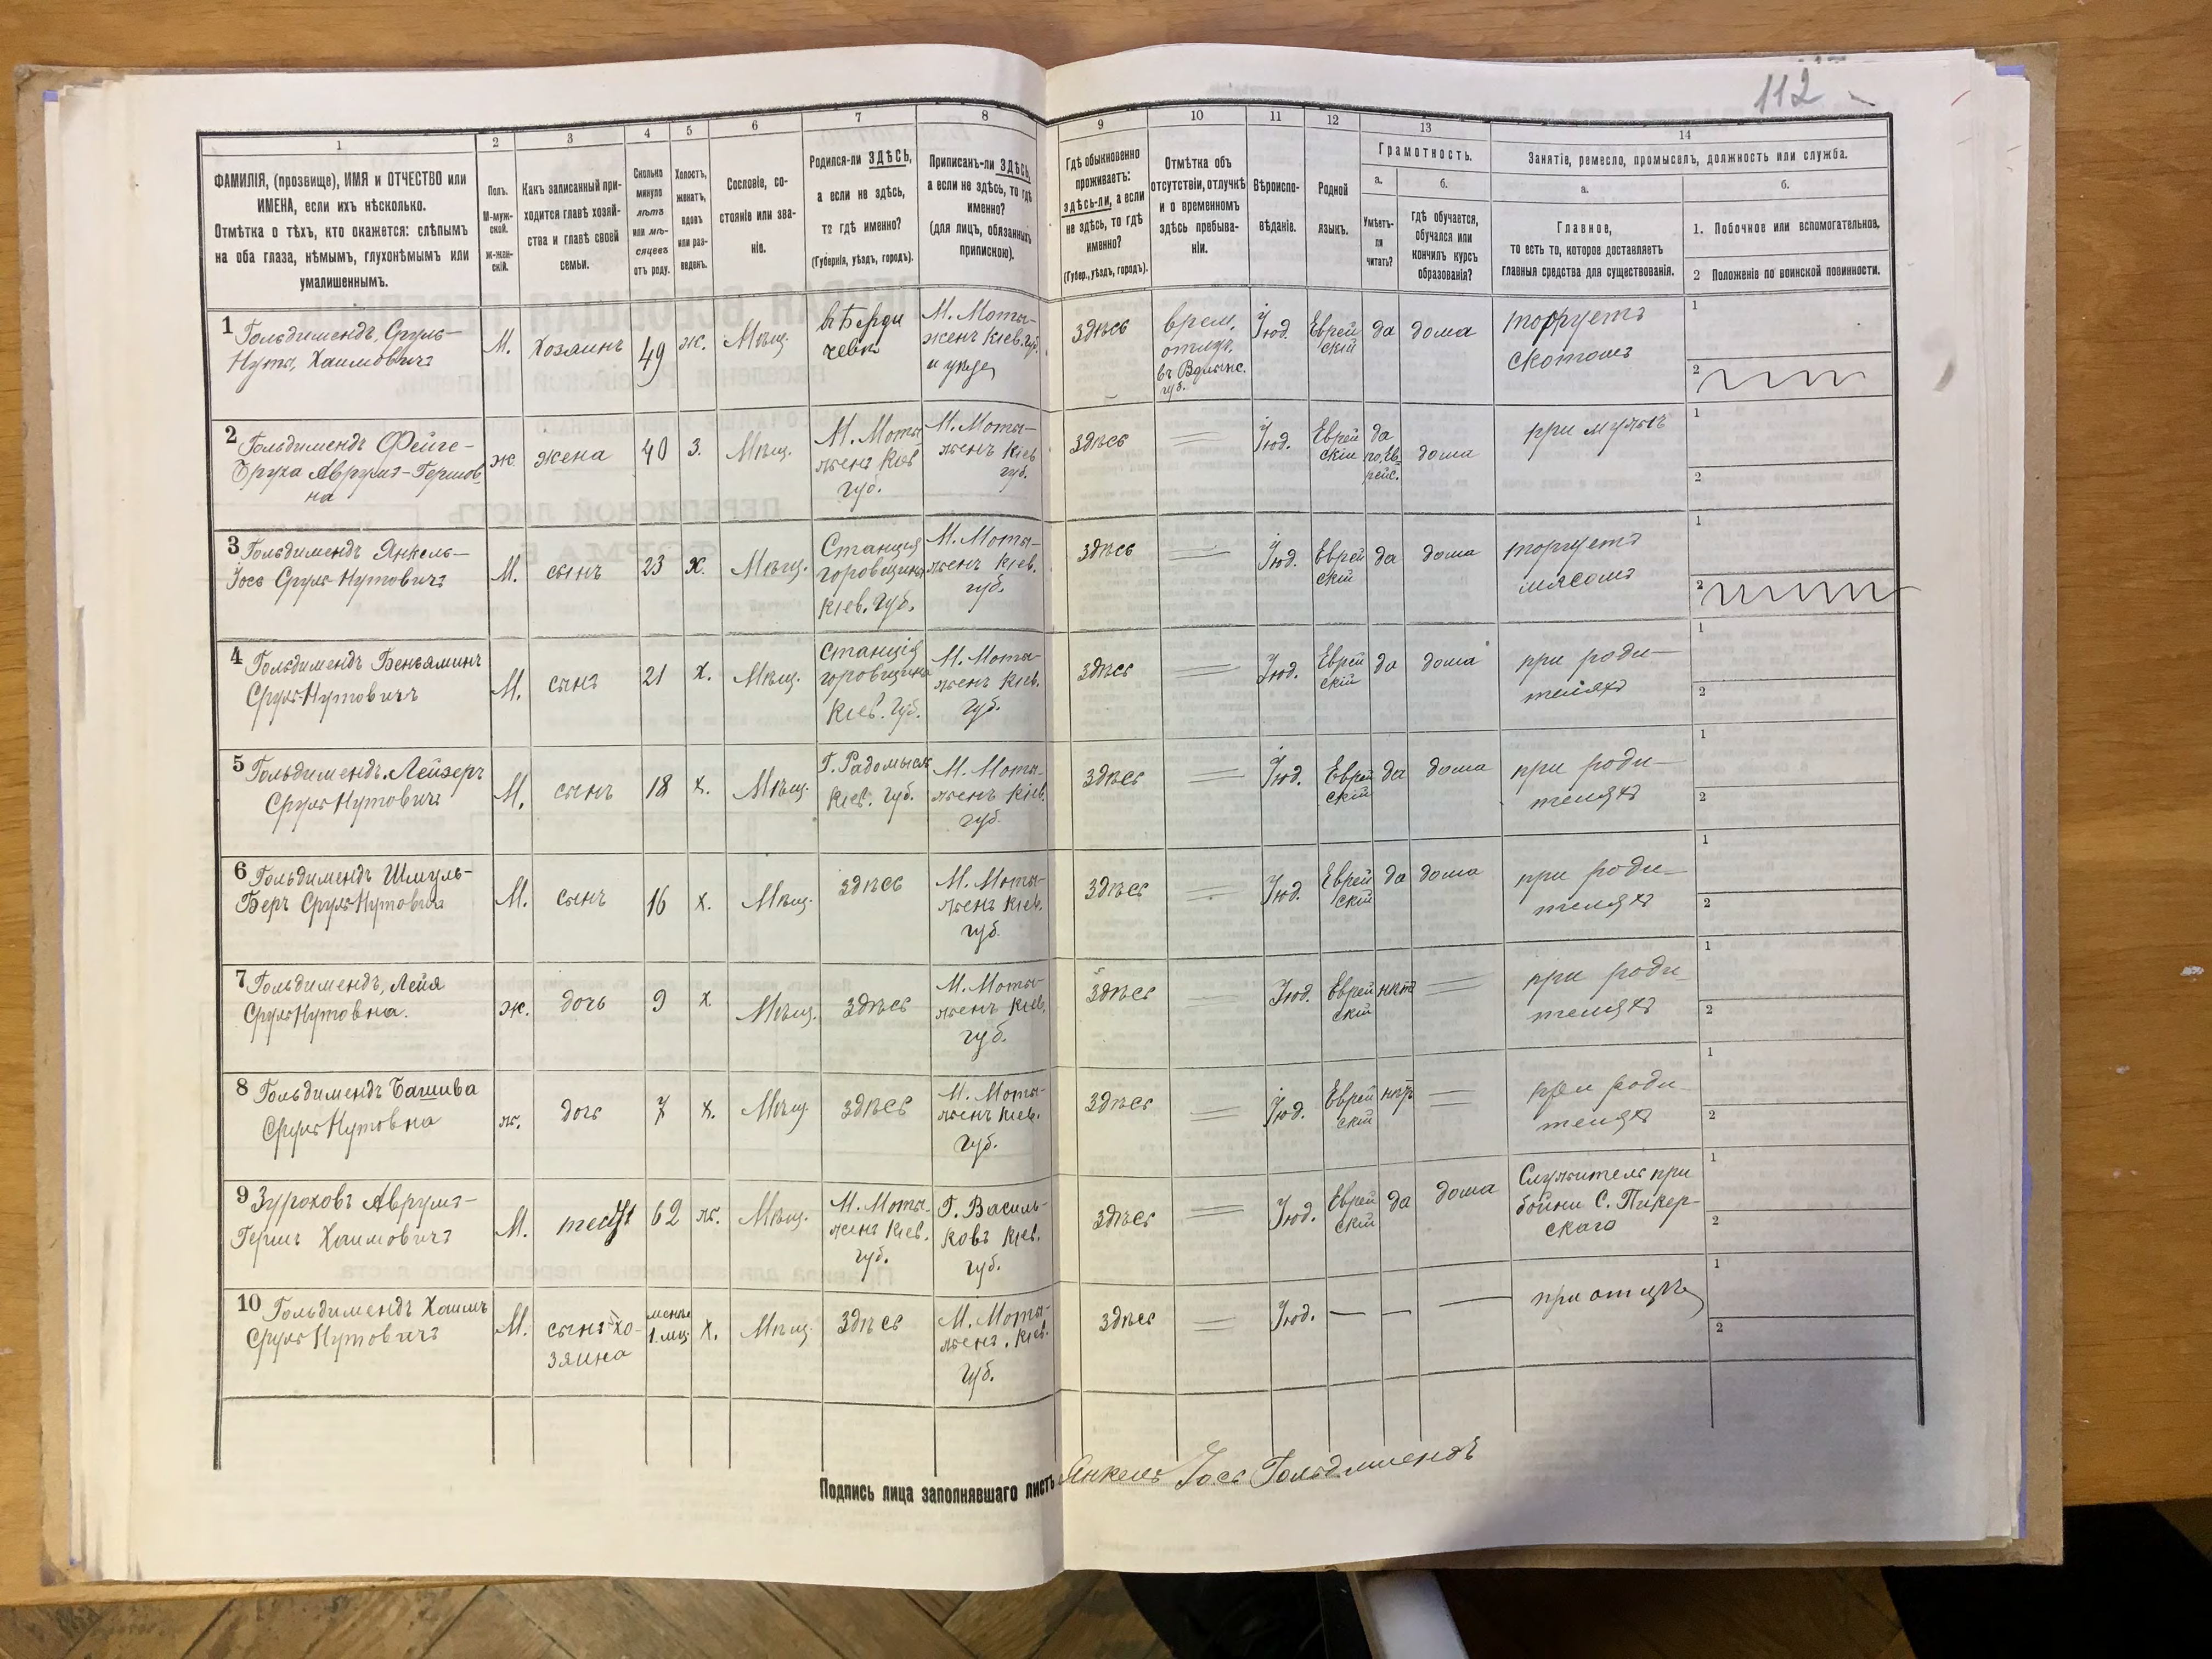 112
1
2
3
4
5
6
7
8
9
10
11
12
13
14
ФАМИЛІЯ, (прозвище), ИМЯ и ОТЧЕСТВО или
ИМЕНА, если ихъ нѣсколько.
Отмѣтка о тѣхъ, кто окажется: слѣпымъ
на оба глаза, нѣмымъ, глухонѣмымъ или
умалишеннымъ.
Полъ.
М-муж-
ской.
Ж-жен-
скій.
Какъ записанный при-
ходится главѣ хозяй-
ства и главѣ своей
семьи.
Сколько
минуло
лѣтъ
или мѣ-
сяцевъ
отъ роду.
Холостъ,
женатъ,
вдовъ
или раз-
веденъ.
Сословіе, со-
стояніе или зва-
ніе.
Родился-ли ЗДѢСЬ,
а если не здѣсь,
то гдѣ именно?
(Губернія, уѣздъ, городъ).
Приписанъ-ли ЗДѢСЬ,
а если не здѣсь, то гдѣ
именно?
(для лицъ, обязанныхъ
припискою).
Гдѣ обыкновенно
проживаетъ:
здѣсь-ли, а если
не здѣсь, то гдѣ
именно?
(Губер., уѣздъ, городъ).
Отмѣтка объ
отсутствіи, отлучкѣ
и о временномъ
здѣсь пребыва-
ніи.
Вѣроиспо-
вѣданіе.
Родной
языкъ.
Грамотность.
а.
б.
Умѣетъ-
ли
читать?
гдѣ обучается,
обучался или
кончилъ курсъ
образованія?
Занятіе, ремесло, промыселъ, должность или служба.
а.
б.
Главное,
то есть то, которое доставляетъ
главныя средства для существованія.
1. Побочное или вспомогательное.
2 Положеніе по воинской повинности.
1 Гольдимендъ, Сруль-
Нута, Хаимовичъ
М.
Хозяинъ
49
ж.
Мѣщ.
въ Берди
чевѣ
М. Моты-
женъ Кіев. Губ.
и уезда
здѣсь
врем.
отлуч.
въ Волынс.
губ.
Іюд.
Еврей
скій
да
дома
торгуетъ
скотомъ
1
2
2 Гольдимендъ Фейге-
Бруха Аврумъ-Гершов
на
ж
жена
40
З.
Мѣщ.
М. Моты
женъ Кіев
губ.
М. Моты-
женъ Кіев
губ.
здѣсь
Іюд.
Еврей
скій
да
по Ев
рейс.
дома
при мужѣ
1
2
3 Гольдимендъ Янкель-
Іось Сруль-Нутовичъ
М.
сынъ
23
Х.
Мѣщ.
Станція
горовщина
Кіев. Губ.
М. Моты-
женъ Кіев.
губ.
здѣсь
Іюд.
Еврей
скій
да
дома
торгуетъ
мясомъ
1
2
4 Гольдимендъ Беньяминъ
СрульНутовичъ
М.
сынъ
21
Х.
Мѣщ.
Станція
горовщина
Кіев. Губ.
М. Моты-
женъ Кіев.
Губ.
здѣсь
Іюд.
Еврей
скій
да
дома
при роди-
теляхъ
1
2
5 Гольдимендъ Лейзеръ
СрульНутовичъ
М.
сынъ
18
х.
Мѣщ.
Г. Радомысль
Кіев. Губ.
М. Моты-
женъ Кіев.
губ.
здѣсь
Іюд.
Еврей
скій
да
дома
при роди-
теляхъ
1
2
6 Гольдимендъ Шмуль-
Беръ СрульНутовичъ
М.
сынъ
16
х.
Мѣщ.
здѣсь
М. Моты-
женъ Кіев.
губ.
здѣсь
Іюд.
Еврей
скій
да
дома
при роди-
теляхъ
1
2
7 Гольдимендъ, Лейя
СрульНутовна.
ж.
дочь
9
Х
Мѣщ.
здѣсь
М. Моты-
женъ Кіев.
губ.
здѣсь
Іюд.
Еврей
скій
нѣтъ
при роди
теляхъ
1
2
8 Гольдимендъ Башива
СрульНутовна
ж.
дочь
7
х.
Мѣщ.
здѣсь
М. Моты-
женъ Кіев.
Губ.
здѣсь
Іюд.
Еврей
скій
нѣтъ
при роди
теляхъ
1
2
9 Зуроховъ Аврумъ-
Гершъ Хаимовичъ
М.
тесть
62
ж.
Мѣщ.
М. Моты-
женъ Кіев.
губ.
Г. Василь-
ковъ Кіев.
губ.
здѣсь
Іюд.
Еврей
скій
да
дома
Служитель при
бойни С. Пикер-
скаго
1
2
10 Гольдимендъ Хаимъ
СрульНутовичъ
М.
сынъ хо-
зяина
менѣе
1. мц.
х.
Мѣщ.
здѣсь
М. Моты-
женъ. Кіев.
Губ.
здѣсь
Іюд.
при отцѣ
1
2
Подпись лица заполнявшаго листъ Янкель Іось Гольдимендъ